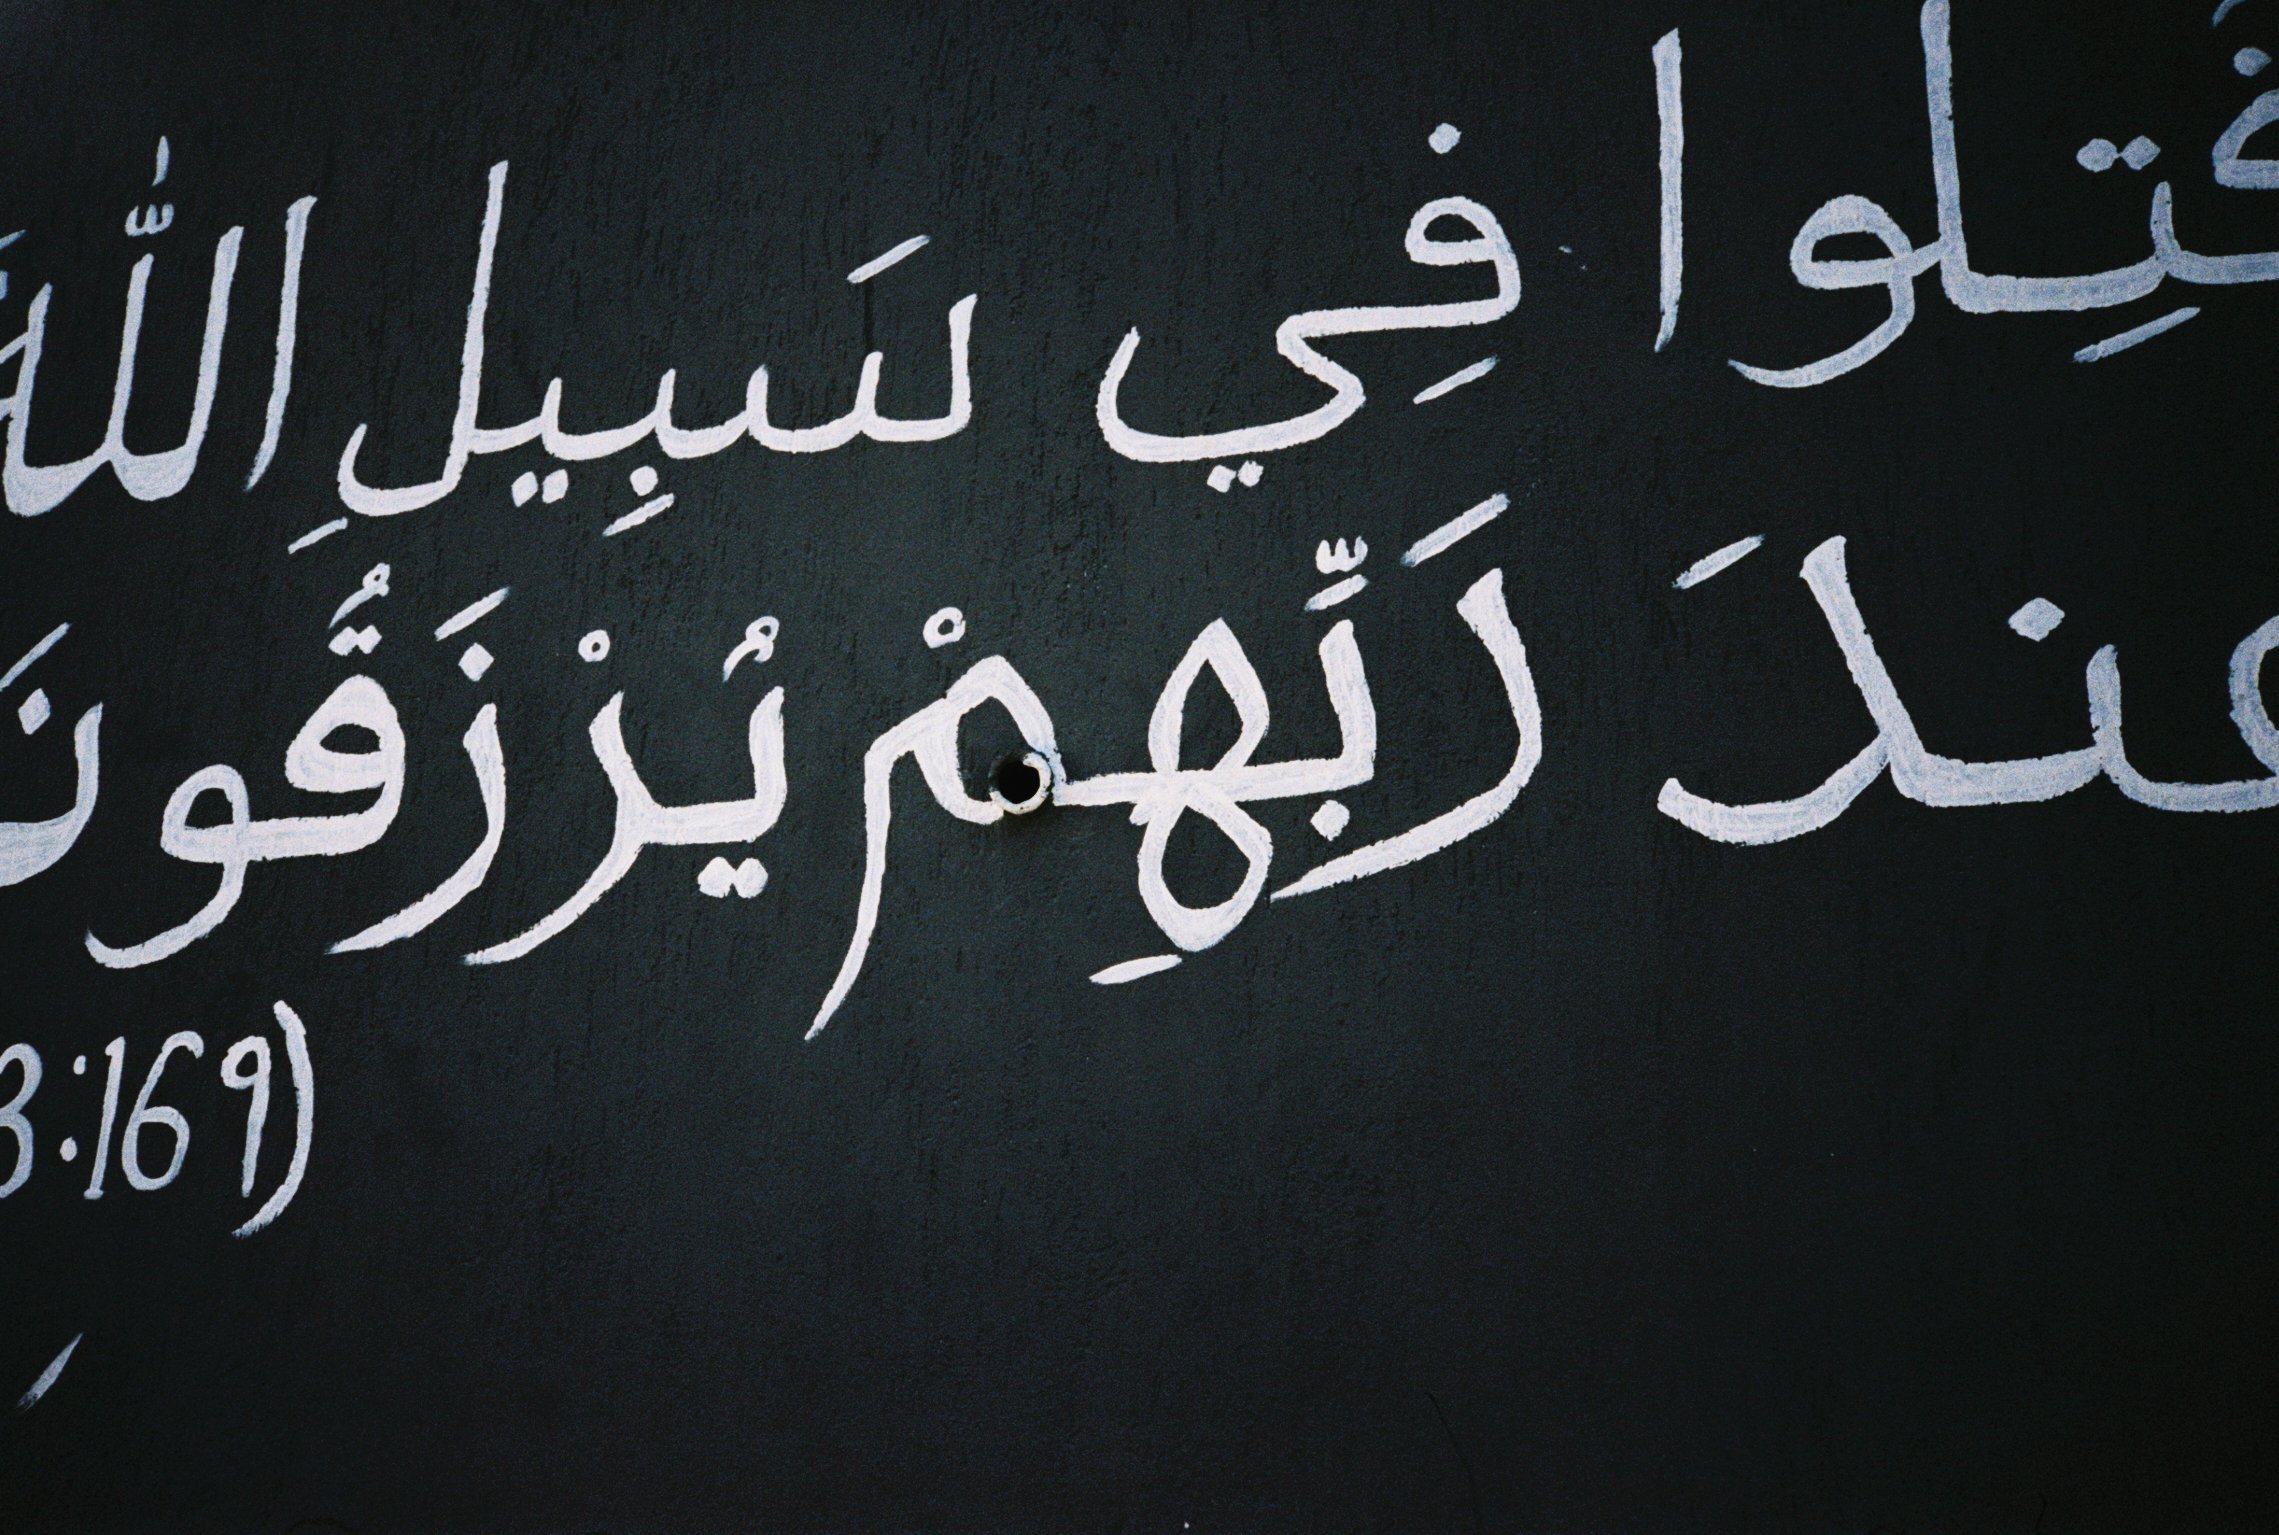 قُتِلوا فِي سَبِيلِ اللّٰه
عندَ رَبِّهِمْ يُرْزَقُونَ
3:169)